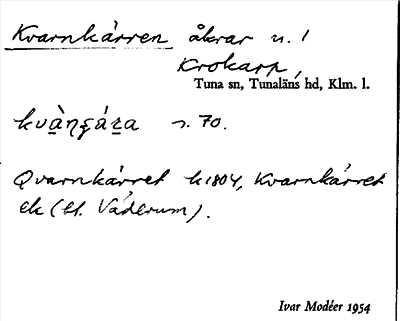 Kvarnkärren åkrar u. 1
Krokarp,
Tuna sn, Tunaläns hd, Klm. l.
s. 70.
Qvarnkärret k 1804, Kvarnkärret
ek (bl. Väderum).
Ivar Modéer 1954